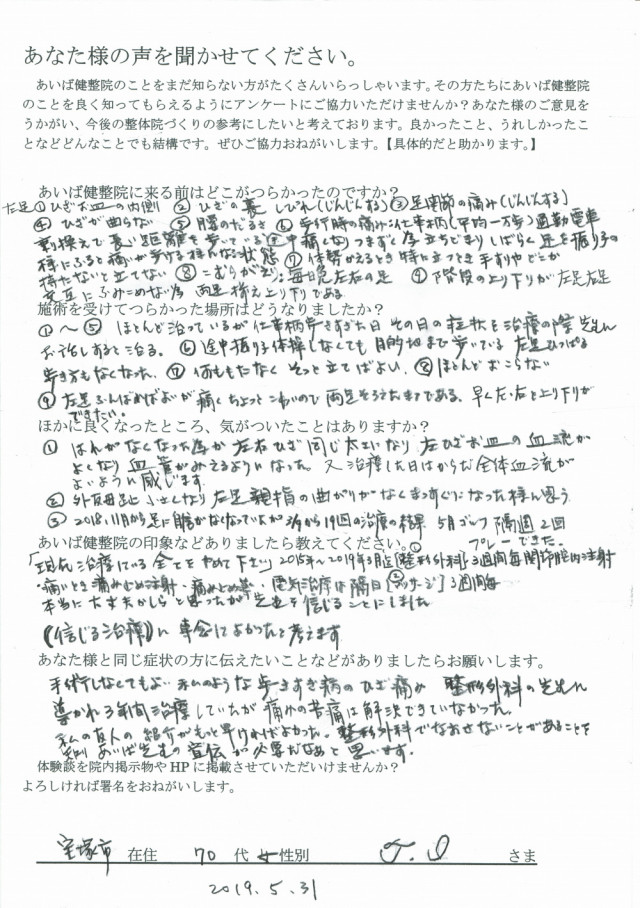 あなた様の声を聞かせてください。
あいば健整院のことをまだ知らない方がたくさんいらっしゃいます。その方たちにあいば健整院
のことを良く知ってもらえるようにアンケートにご協力いただけませんか？あなた様のご意見を
うかがい、今後の整体院づくりの参考にしたいと考えております。良かったこと、うれしかったこ
となどどんなことでも結構です。ぜひご協力おねがいします。【具体的だと助かります。】
あいば健整院に来る前はどこがつらかったのですか？
左足①ひざお皿の内側 ②ひざの裏 しびれ(じんじんする)③足関節の痛み(じんじんする)
④ ひざが曲らない ⑤腰のだるさ ⑥歩行時の痛み 仕事柄(平均一万歩)通勤電車
乗換えで長い距離を歩いている 中痛くなりつまずく為立ちどまりしばらく足を振り子の
様にふると痛いが歩ける様になる状態 ⑦体勢かえるとき特に立つとき手すりやどこか
持たないと立てない ⑧こむらがえり:毎晩左右の足 ④階段の上り下りが左足右足
交互にふみこめない為 両足揃え上り下りである
施術を受けてつらかった場所はどうなりましたか？
①～⑤ ほとんど治っているが仕事柄歩きすぎた日 その日の症状を治療の際 先生に
お話しすると治る。⑥途中振り子体操しなくても目的地まで歩いている 左足ひっぱる
歩き方もなくなった。⑦何ももたなく そっと立てばよい。⑧ほとんどおこらない
⑨左足ふんばればよいが痛くちょっとこわいので両足そろえたままである、早く左・右と上り下りが
できたい。
ほかに良くなったところ、気がついたことはありますか？
① はれがなくなった為か 左右ひざ同じ太さになり 左ひざお皿の血流が
よくなり血管がみえるようになった。又治療した日はからだ全体血流が
よいように感じます。
② 外反母趾 小さくなり 左足親指の曲がりがなくまっすぐになった様に思う
③ 2018.11月から足に から19回の治療の結果 5月ゴルフ 隔週2回
プレーできた。
あいば健整院の印象などありましたら教えてください。
「現在治療している全てをやめて下さい」2015年～2019年3月迄[整形外科]3週間毎関節腔内注射
・痛いとき痛み止め注射・痛み止め薬・電気治療は隔日[マッサージ]3週間毎
本当に大丈夫かしらと思ったが先生を信じることにしました
(信じる治療)に専念してよかったと考えます
あなた様と同じ症状の方に伝えたいことなどがありましたらお願いします。
手術しなくてもよい 私のような歩きすぎ病のひざ痛み 整形外科の先生に
導かれ3年間治療していたが痛みの苦痛は解決できていなかった。
私の友人の紹介がもっと早ければよかった。整形外科でなおせないことがあることを
知り あいば先生の宣伝が必要だなあと思います。
体験談を院内掲示物やHPに掲載させていただいけませんか？
よろしければ署名をおねがいします。
宝塚市 在住 70 代 女 性別 T.I さま
2019.5.31